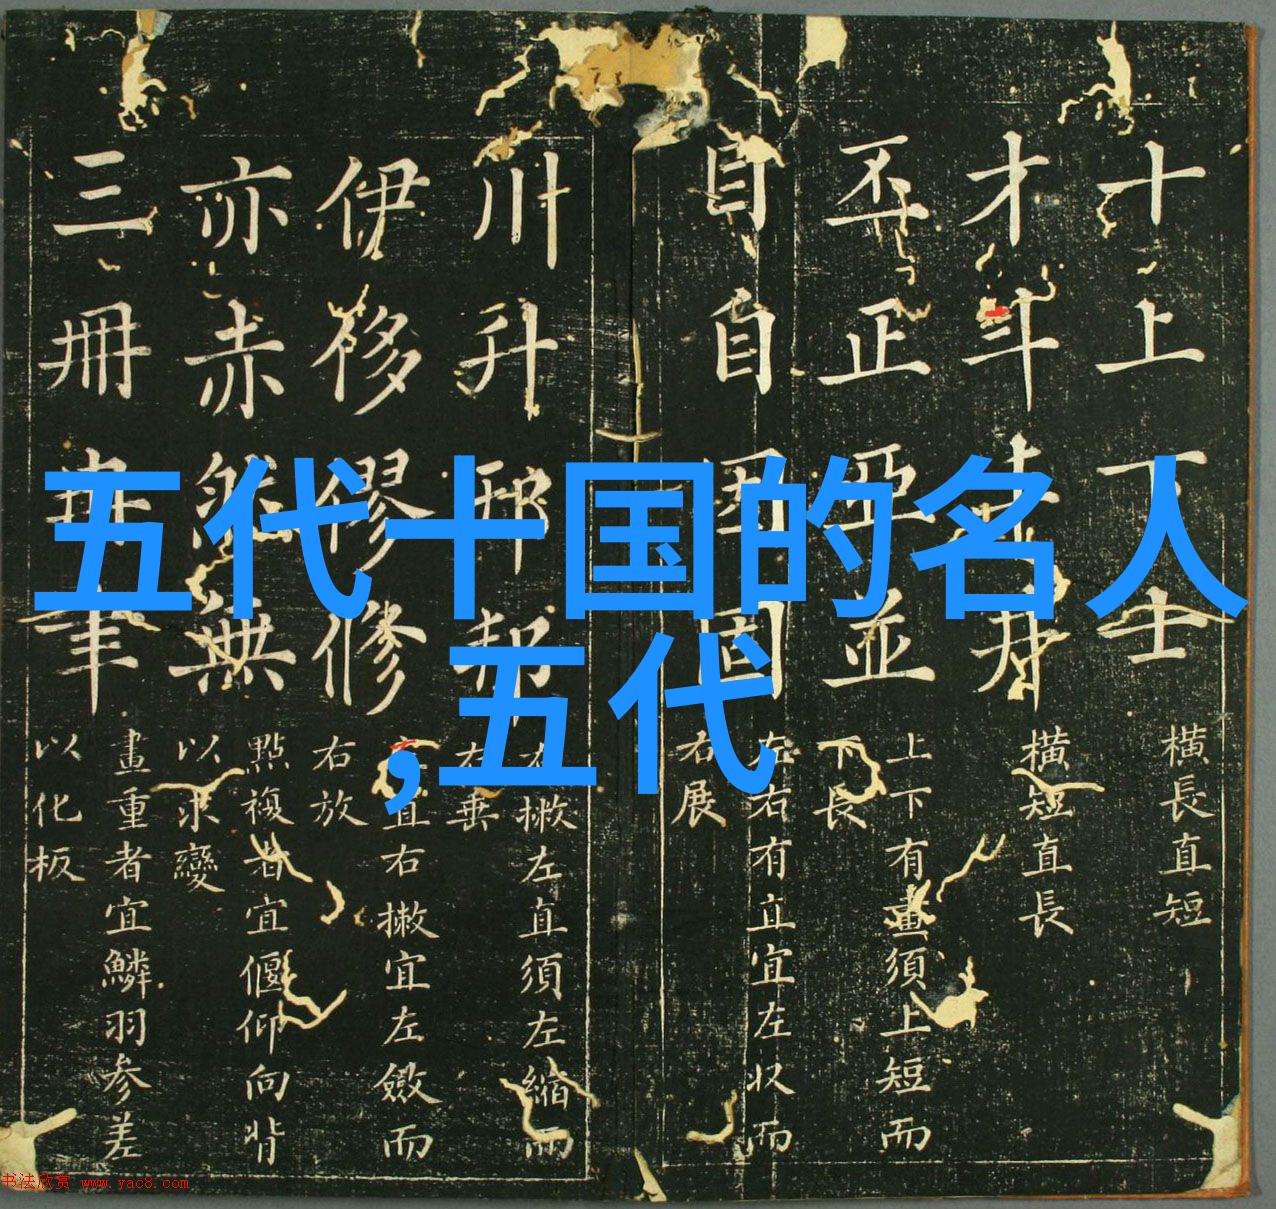 五代十国的名人
,五代
十上下士
橫長直短
才斗
橫短直長
丕正亞並
上下有畫須上短而
下長
目自因固
左右有直宜左收而
右展
川升邦
撇左直須左縮而
右垂
伊侈修
直右撇宜左斂而
右放
亦赤然無
點複者宜偃仰向背
以求變
三冊聿
畫重者宜鱗羽参差
以化板
书法欣赏 www.yac8.com